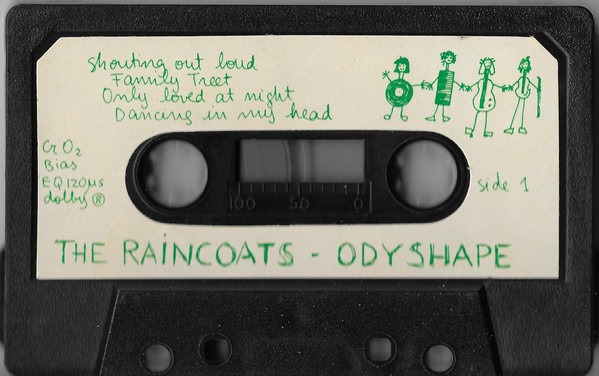 Shouting out loud
Family Treet
Only loved at night
Dancing in my head
CrO2
Bias
EQ120µs
dolby ®
side 1
100 50 0
THE RAINCOATS - ODYSHAPE